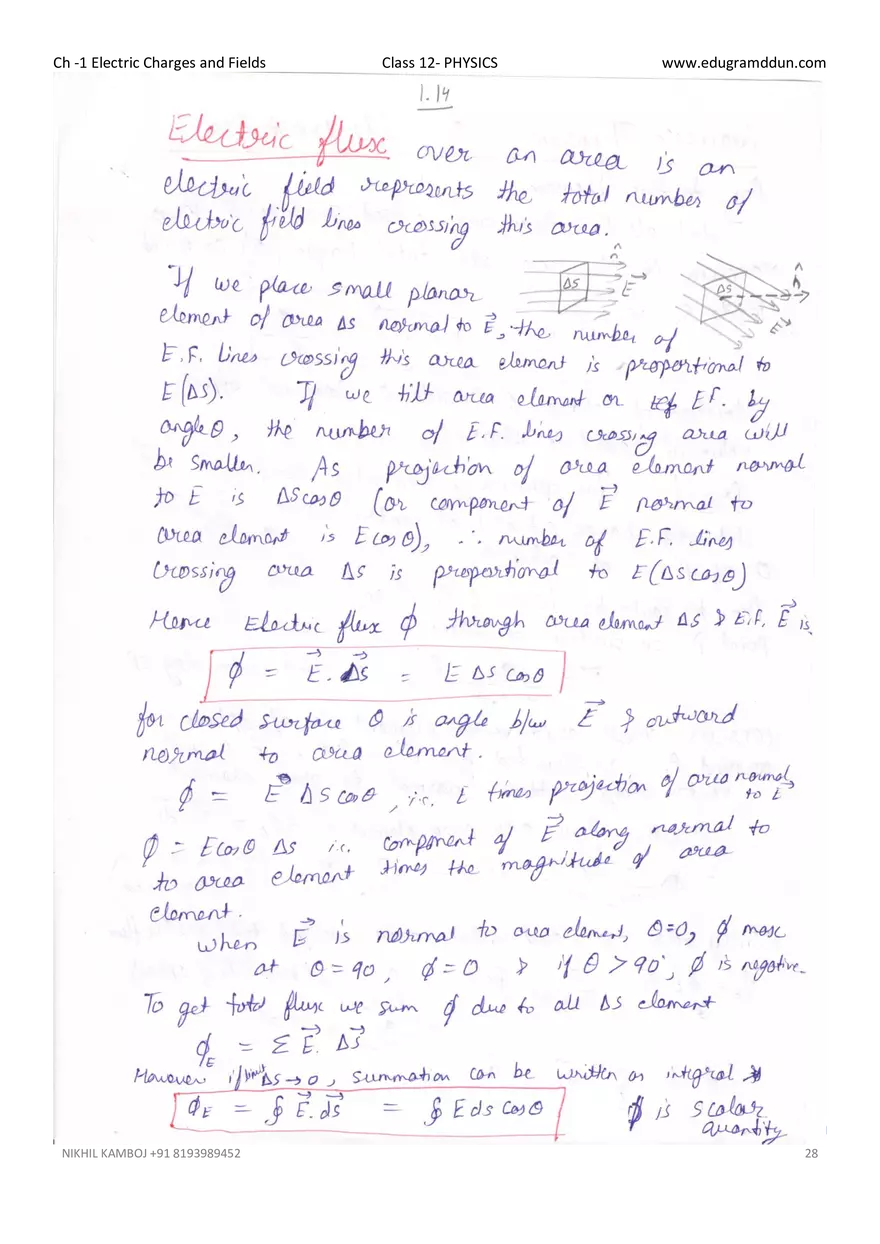 Ch -1 Electric Charges and Fields Class 12- PHYSICS www.edugramddun.com
1.14
Electric flux over an area is an
electric field represents the total number of
electric field lines crossing this area.
If we place small planar
ΔS n̂ E⃗
ΔS n̂ E⃗
element of area ΔS normal to E⃗, the number of
E.F. lines crossing this area element is proportional to
E(ΔS). If we tilt area element or EF. by
angle θ, the number of E.F. lines crossing area will
be smaller. As projection of area element normal
to E is ΔS cos θ (or component of E⃗ normal to
area element is E cos θ), ∴ number of E.F. lines
crossing area ΔS is proportional to E(ΔS cos θ)
Hence Electric flux ϕ through area element ΔS & E.F. E⃗ is
ϕ = E⃗. ΔS⃗ = E ΔS cos θ
for closed surface θ is angle b/w E⃗ & outward
normal to area element.
ϕ = E ΔS cos θ, i.e. E times projection of area normal
to E⃗
ϕ = E cos θ ΔS i.e. component of E⃗ along normal to
to area element times the magnitude of area
element.
when E⃗ is normal to area element, θ=0, ϕ max
at θ = 90, ϕ = 0 & if θ > 90°, ϕ is negative.
To get total flux we sum ϕ due to all ΔS element
ϕE = Σ E⃗. ΔS⃗
However if limit ΔS → 0, summation can be written as integral
ϕE = ∮ E⃗. ds⃗ = ∮ E ds cos θ ϕ is scalar
quantity
NIKHIL KAMBOJ +91 8193989452 28